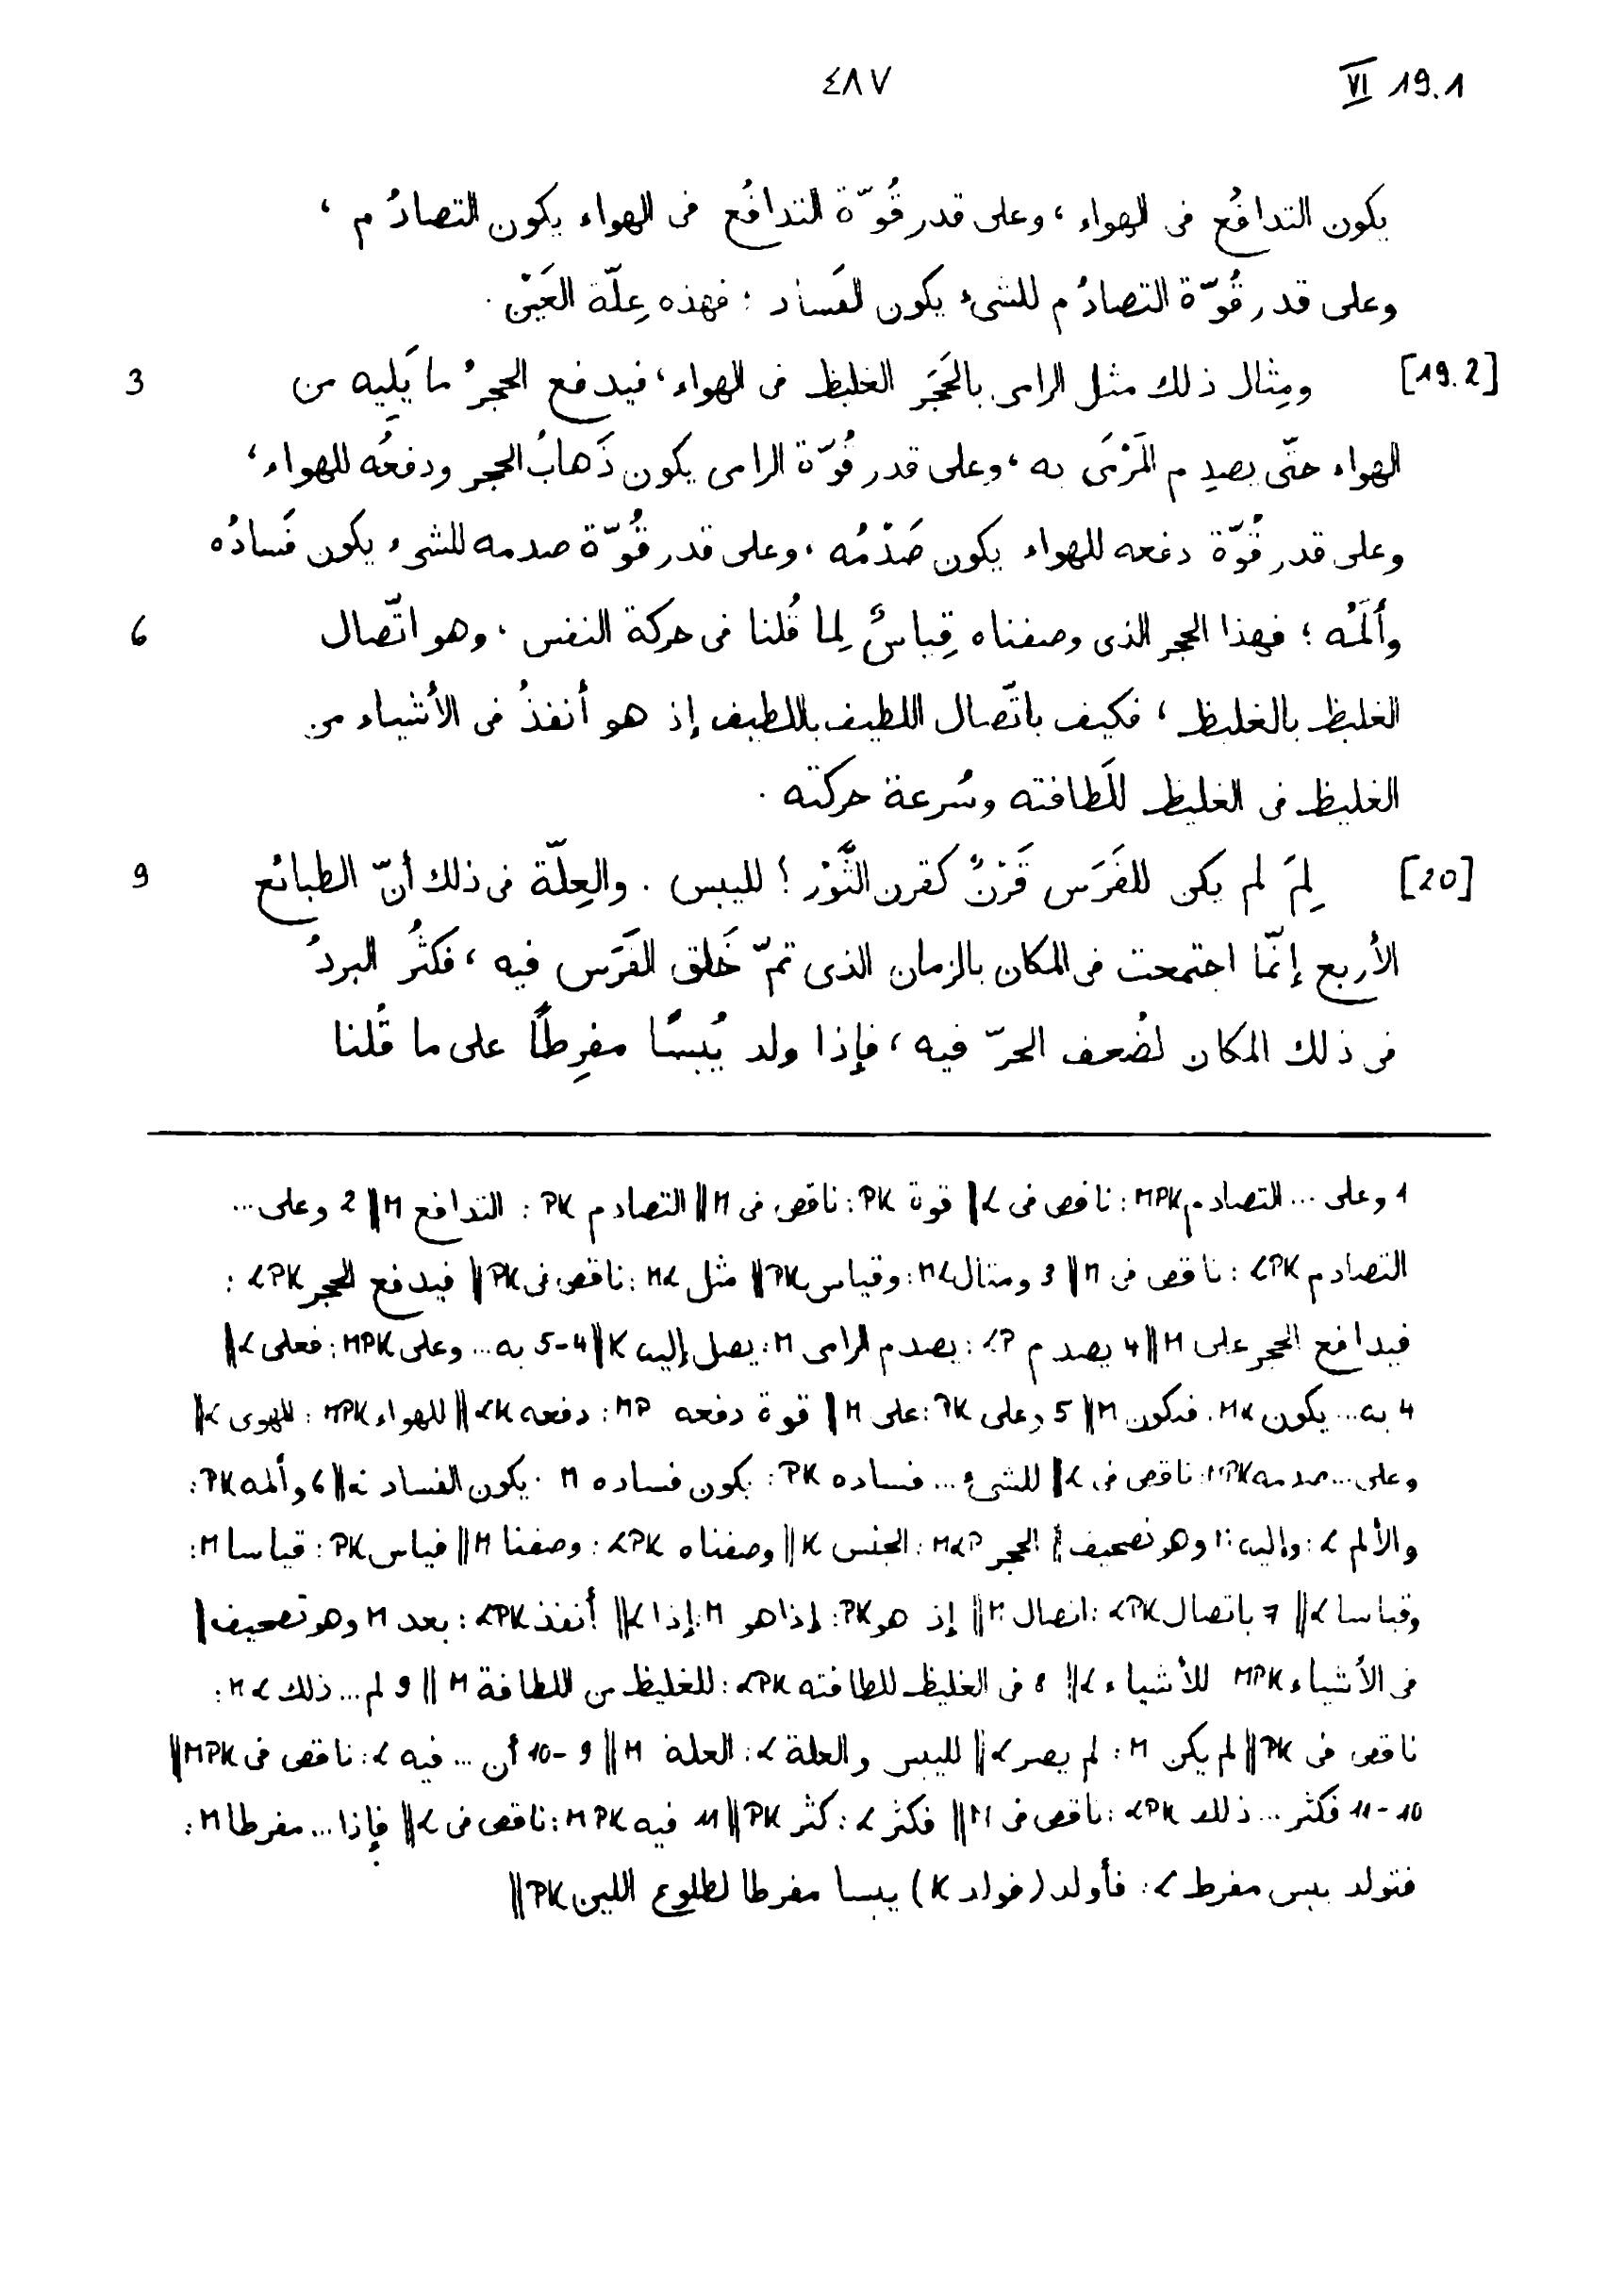 VI 19.1 ٤٨٧
يكون التدافُع فى الهواء، وعلى قدر قُوّة التدافُع فى الهواء يكون التصادُم،
وعلى قدر قُوّة التصادُم للشىء يكون الفَساد؛ فهذه عِلّة العَيْن.
[19.2] ومِثال ذلك مثل الرامى بالحَجَر الغليظ فى الهواء، فيدفع الحجرُ ما يَلِيه من 3
الهواء حتّى يصدِم المَرْمَى به، وعلى قدر قُوّة الرامى يكون ذَهابُ الحجر ودفعُه للهواء،
وعلى قدر قُوّة دفعه للهواء يكون صَدْمُه، وعلى قدر قُوّة صدمه للشىء يكون فَسادُه
وأَلَمُه؛ فهذا الحجر الذى وصفناه قِياسٌ لِما قُلنا فى حركة النفس، وهو اتّصال 6
الغليظ بالغليظ، فكيف باتّصال اللطيف باللطيف إذ هو أنفذُ فى الأشياء من
الغليظ فى الغليظ للَطافته وسُرعة حركته.
[20] لِمَ لم يكن للفَرَس قَرْنٌ كقرن الثَّوْر؟ لليبس. والعِلّة فى ذلك أنّ الطبائع 9
الأربع إنّما اجتمعت فى المكان بالزمان الذى تمّ خَلق الفَرَس فيه، فكثُر البردُ
فى ذلك المكان لضُعف الحرّ فيه، فإذا ولد يُبسًا مفرِطًا على ما قُلنا
1 وعلى ... التصادم MPK: ناقص فى L || قوة PK: ناقص فى M || التصادم PK: التدافع M || 2 وعلى ...
التصادم LPK: ناقص فى M || 3 ومثال ML: وقياس PK || مثل ML: ناقص فى PK || فيدفع الحجر LPK:
فيدافع الحجر على M || 4 يصدم LP: يصدم الرامى M: يصل إليه K || 4-5 به ... وعلى MPK: فعلى L ||
4 به ... يكون MK: فتكون M || 5 وعلى PK: على M || قوة دفعه MP: دفعه LK || للهواء MPK: للهوى L ||
وعلى ... صدمه MPK: ناقص فى L || للشىء ... فساده PK: يكون فساده M: يكون الفساد L || 6 وألمه PK:
والألم L: وإليه M وهو تصحيف || الحجر MLP: الجنس K || وصفناه LPK: وصفنا M || قياس PK: قياسا M:
وقياسا L || 7 باتصال LPK: اتصال M || إذ هو PK: إذا هو M: إذا L || أنفذ LPK: بعد M وهو تصحيف ||
فى الأشياء MPK للأشياء L || 8 فى الغليظ للطافته LPK: للغليظ من اللطافة M || 9 لم ... ذلك ML:
ناقص فى PK || لم يكن M: لم يصر L || لليبس والعلة L: العلة M || 9-10 أن ... فيه L: ناقص فى MPK ||
10-11 فكثر ... ذلك LPK: ناقص فى M || فكثر L: كثر PK || 11 فيه MPK: ناقص فى L || فإذا ... مفرطا M:
فتولد يبس مفرط L: فأولد (فولد K) يبسا مفرطا لطلوع اللين PK ||